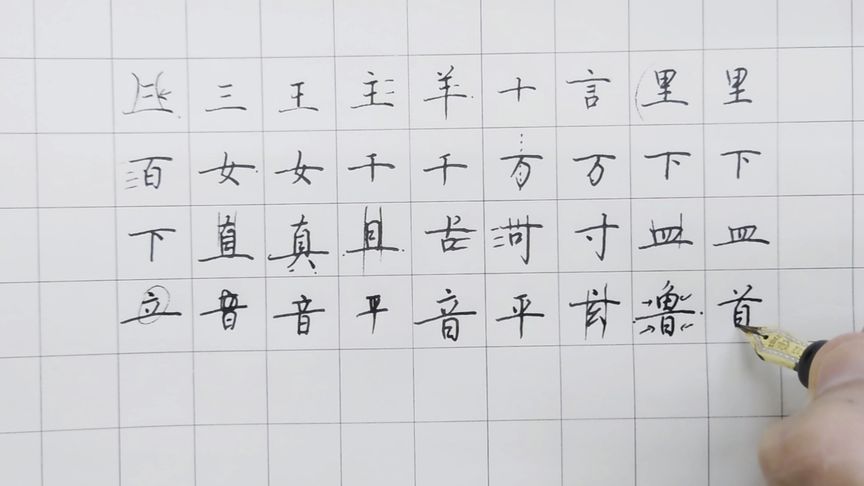 三 王 主 羊 十 言 里 里
百 女 女 干 干 万 万 下 下
下 直 真 且 寸 皿 皿
立 音 音 平 音 平 魯 首